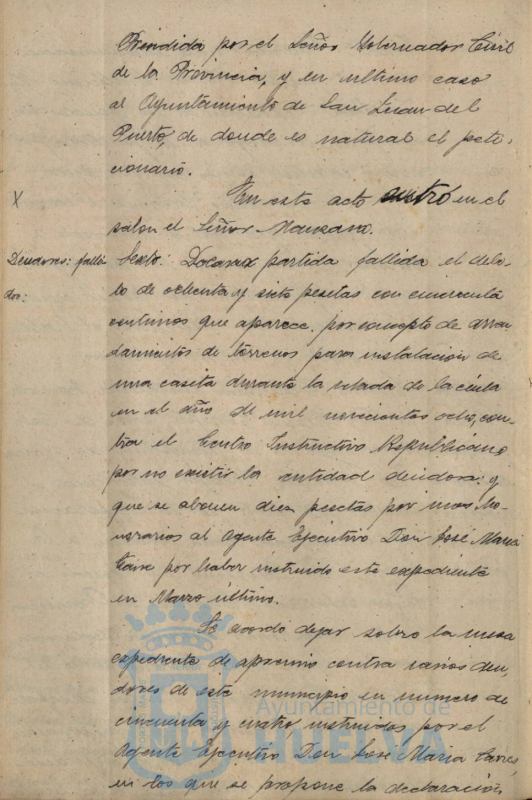 Prendida por el Señor Gobernador Civil
de la Provincia, y en ultimo caso
al Ayuntamiento de San Juan del
Puerto, de donde es natural el peti-
cionario.
X
En este acto entró en el
salon el Señor Manzano.
Deudores: falli-
dos:
Sexto: partida fallida el debi-
to de ochenta y siete pesetas con cincuenta
centimos que aparece, por concepto de arren-
damientos de terrenos para instalación de
una caseta durante la velada de la Cinta
en el año de mil novecientos ocho, con-
tra el Centro Instructivo Republicano
por no existir la entidad deudora: y
que se abonen diez pesetas por sus ho-
norarios al Agente Ejecutivo Don José Maria
por haber instruido este expediente
en Marzo último.
Se acordó dejar sobre la mesa
expediente de apremio contra varios deu-
dores de este municipio en numero de
cincuenta y cuatro, instruidos por el
Agente Ejecutivo Don José Maria
en los que se propone la declaración
Ayuntamiento de
HUELVA